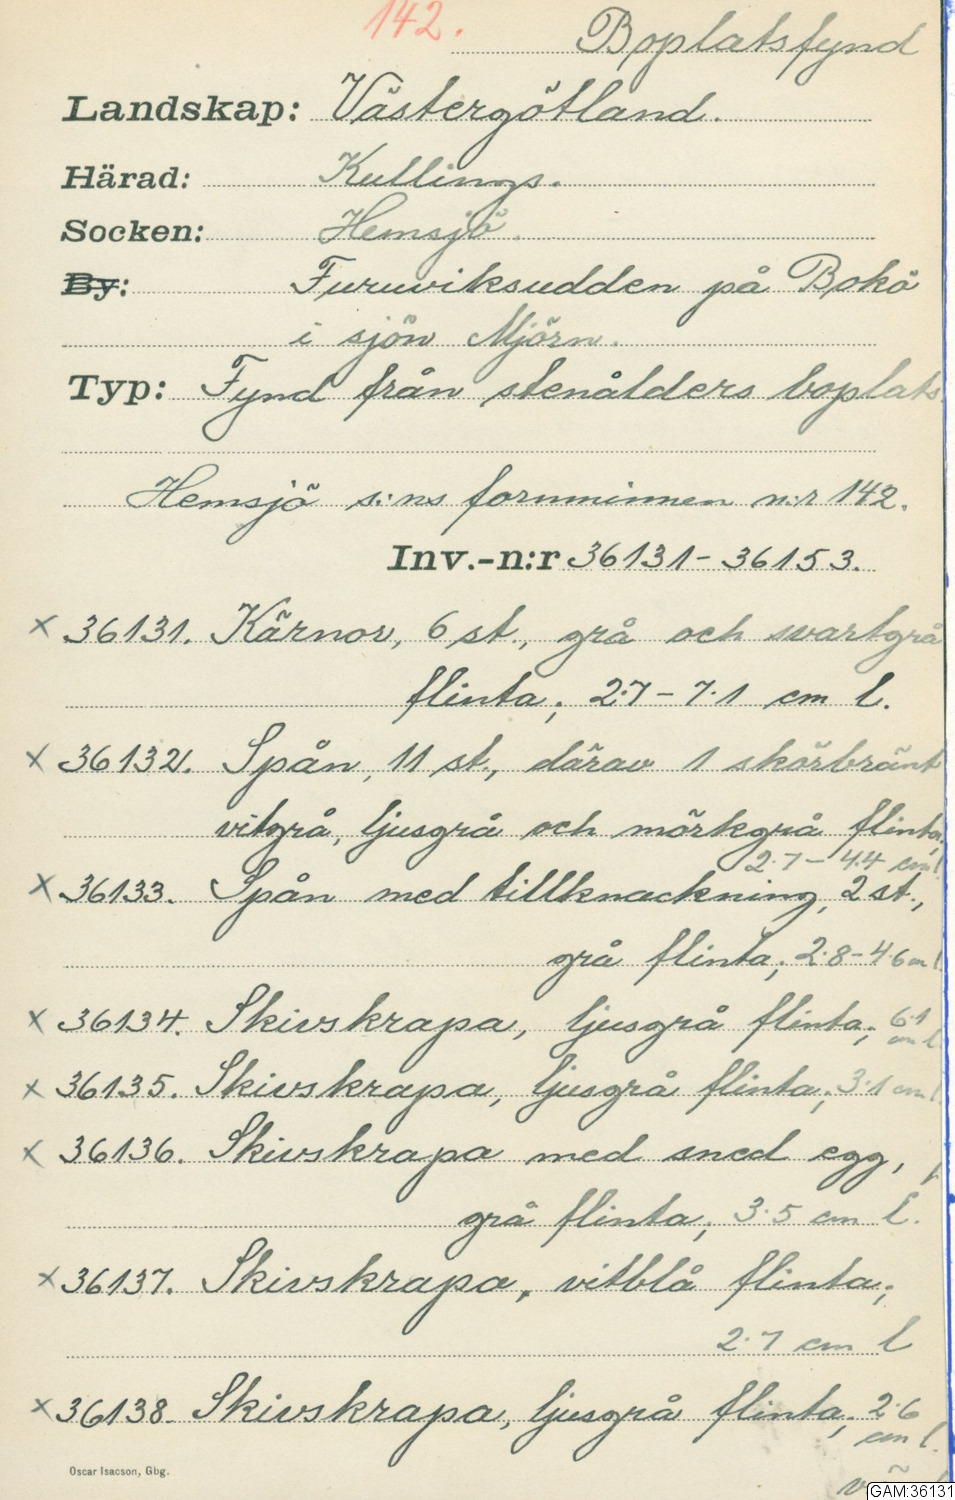 142.
Boplatsfynd
Landskap: Västergötland.
Härad: Kullings.
Socken: Hemsjö.
By: Furuviksudden på Bokö
i sjön Mjörn.
Typ: Fynd från stenålders boplats.
Hemsjö s:ns fornminnen n:r 142.
Inv.-n:r 36131-36153.
x 36131. Kärnor, 6 st., grå och svartgrå
flinta; 2.7-7.1 cm l.
x 36132. Spån, 11 st., därav 1 skörbränt
vitgrå, ljusgrå och mörkgrå flinta,
2.7-4.4 cm l.
x 36133. Spån med tillknackning, 2 st.,
grå flinta; 2.8-4.6 cm l.
x 36134. Skivskrapa, ljusgrå flinta; 6.1
cm l.
x 36135. Skivskrapa, ljusgrå flinta; 3.1 cm l.
x 36136. Skivskrapa med sned egg,
grå flinta; 3.5 cm l.
x 36137. Skivskrapa, vitblå flinta;
2.7 cm l
x 36138. Skivskrapa, ljusgrå flinta; 2.6
cm l.
Oscar Isacson, Gbg.
GAM:36131